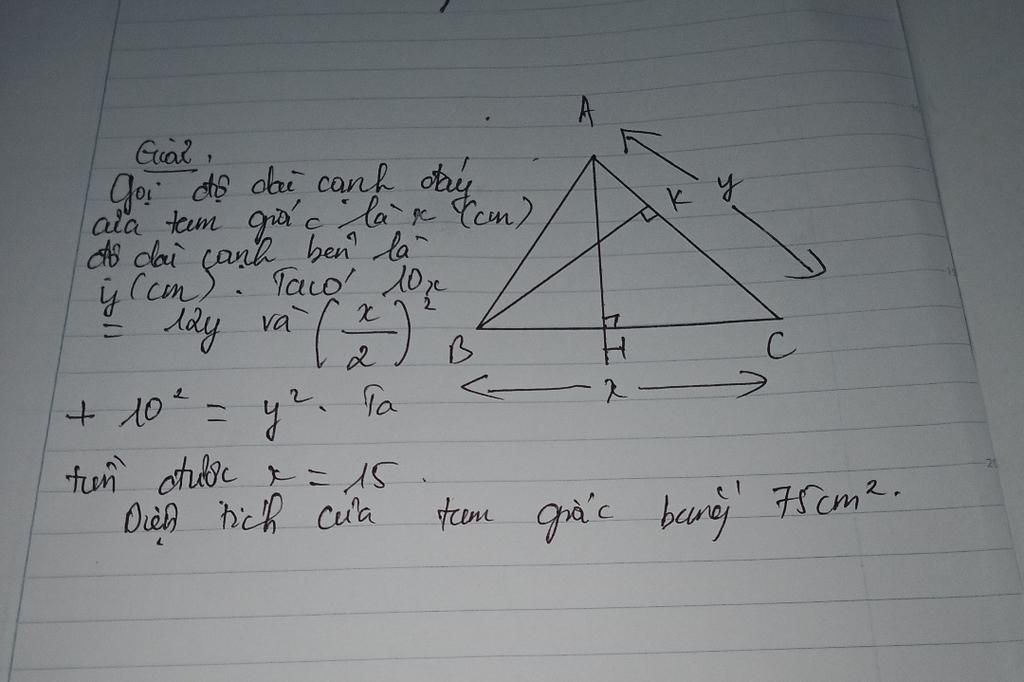 Giải.
Gọi độ dài cạnh đáy
của tam giác là x (cm)
độ dài cạnh bên là
y (cm). Ta có 10x
= 12y và (x/2)²
+ 10² = y². Ta
tìm được x = 15.
Diện tích của tam giác bằng 75cm².
A
K
y
B
H
C
x